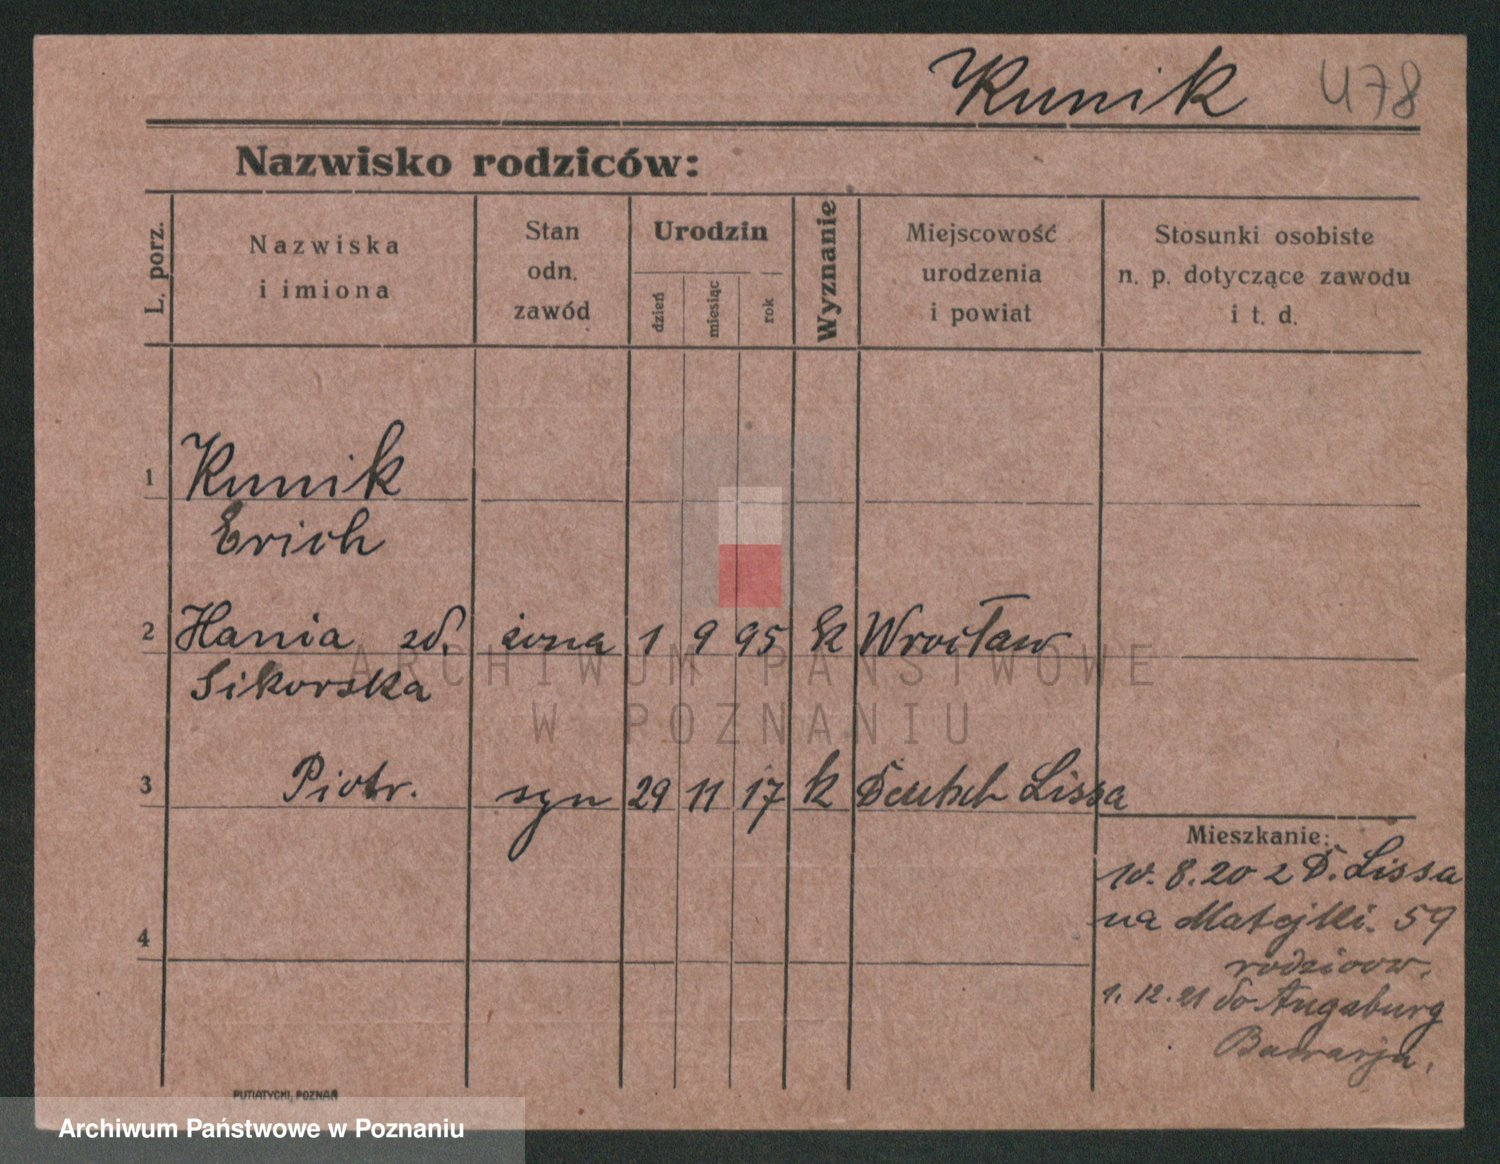 Kunik 478
Nazwisko rodziców:
L. porz.
Nazwiska
i imiona
Stan
odn.
zawód
Urodzin
dzień
miesiąc
rok
Wyznanie
Miejscowość
urodzenia
i powiat
Stosunki osobiste
n. p. dotyczące zawodu
i t. d.
1 Kunik
Erich
2 Hania zd. żona 1 9 95 k Wrocław
Sikorska
3 Piotr. syn 29 11 17 k Deutsch Lissa
Mieszkanie:
10. 8. 20 z D. Lissa
na Matejki. 59
rodziców.
1. 12. 21 do Augsburg
Bawarja.
4
PUTIATYCKI, POZNAŃ
ARCHIWUM PAŃSTWOWE
W POZNANIU
Archiwum Państwowe w Poznaniu